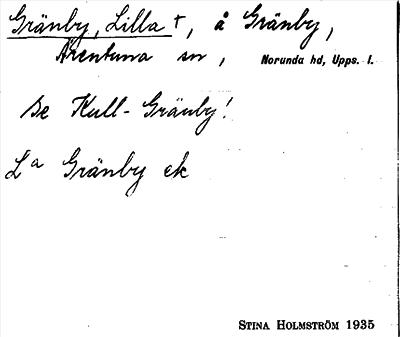 Gränby, Lilla †, å Gränby,
Ärentuna sn, Norunda hd, Upps. l.
Se Kull-Gränby!
Lª Gränby ek
STINA HOLMSTRÖM 1935